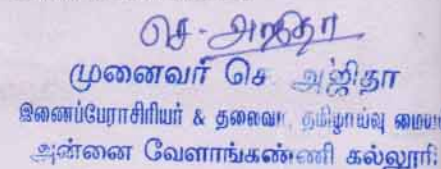 செ. அஜிதா
முனைவர் செ. அஜிதா
இணைப்பேராசிரியர் & தலைவர், தமிழாய்வு மைய
அன்னை வேளாங்கண்ணி கல்லூரி